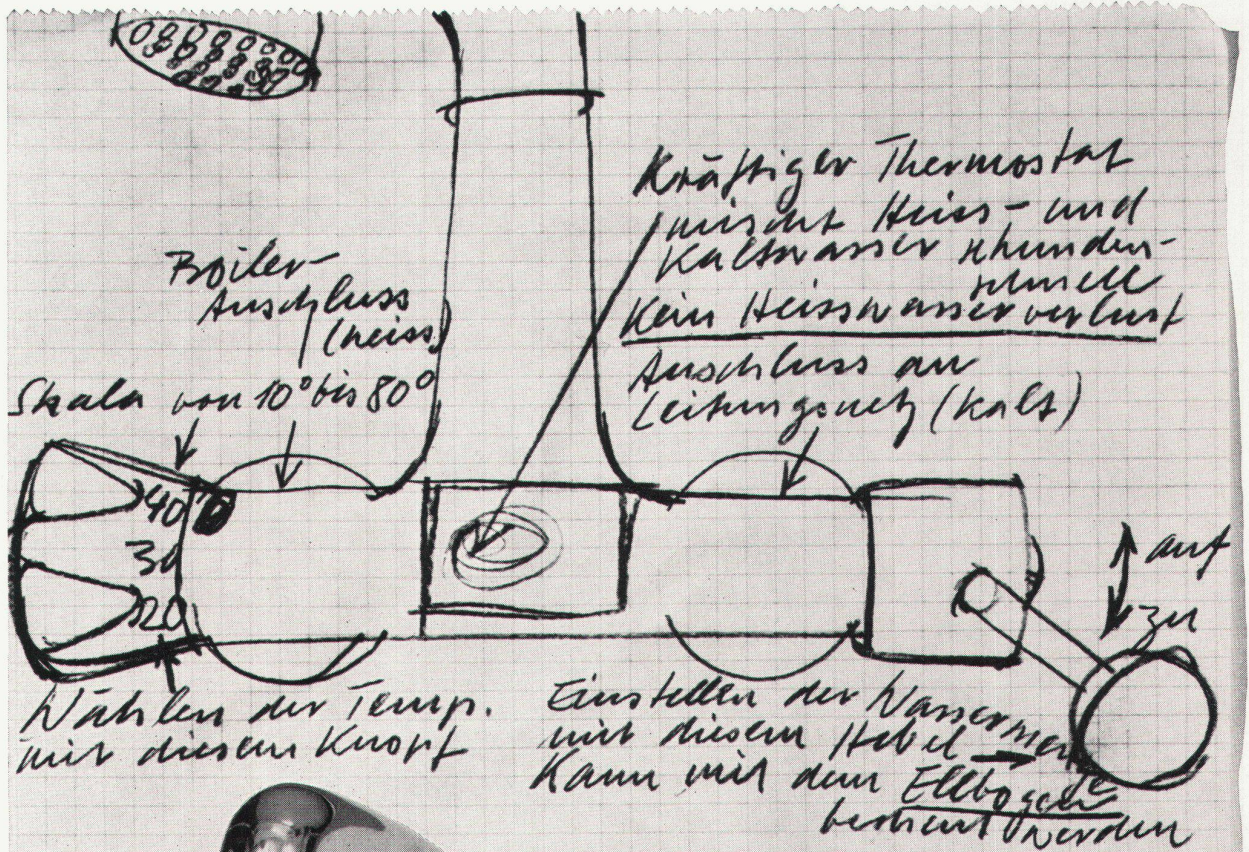 Kräftiger Thermostat
mischt Heiss- und
Kaltwasser sekunden-
schnell
Kein Heisswasserverlust
Boiler-
Anschluss
(heiss)
Anschluss an
Leitungsnetz (kalt)
Skala von 10° bis 80°
40
30
20
auf
zu
Wählen der Temp.
mit diesem Knopf
Einstellen der Wassermenge
mit diesem Hebel
Kann mit dem Ellbogen
bedient werden